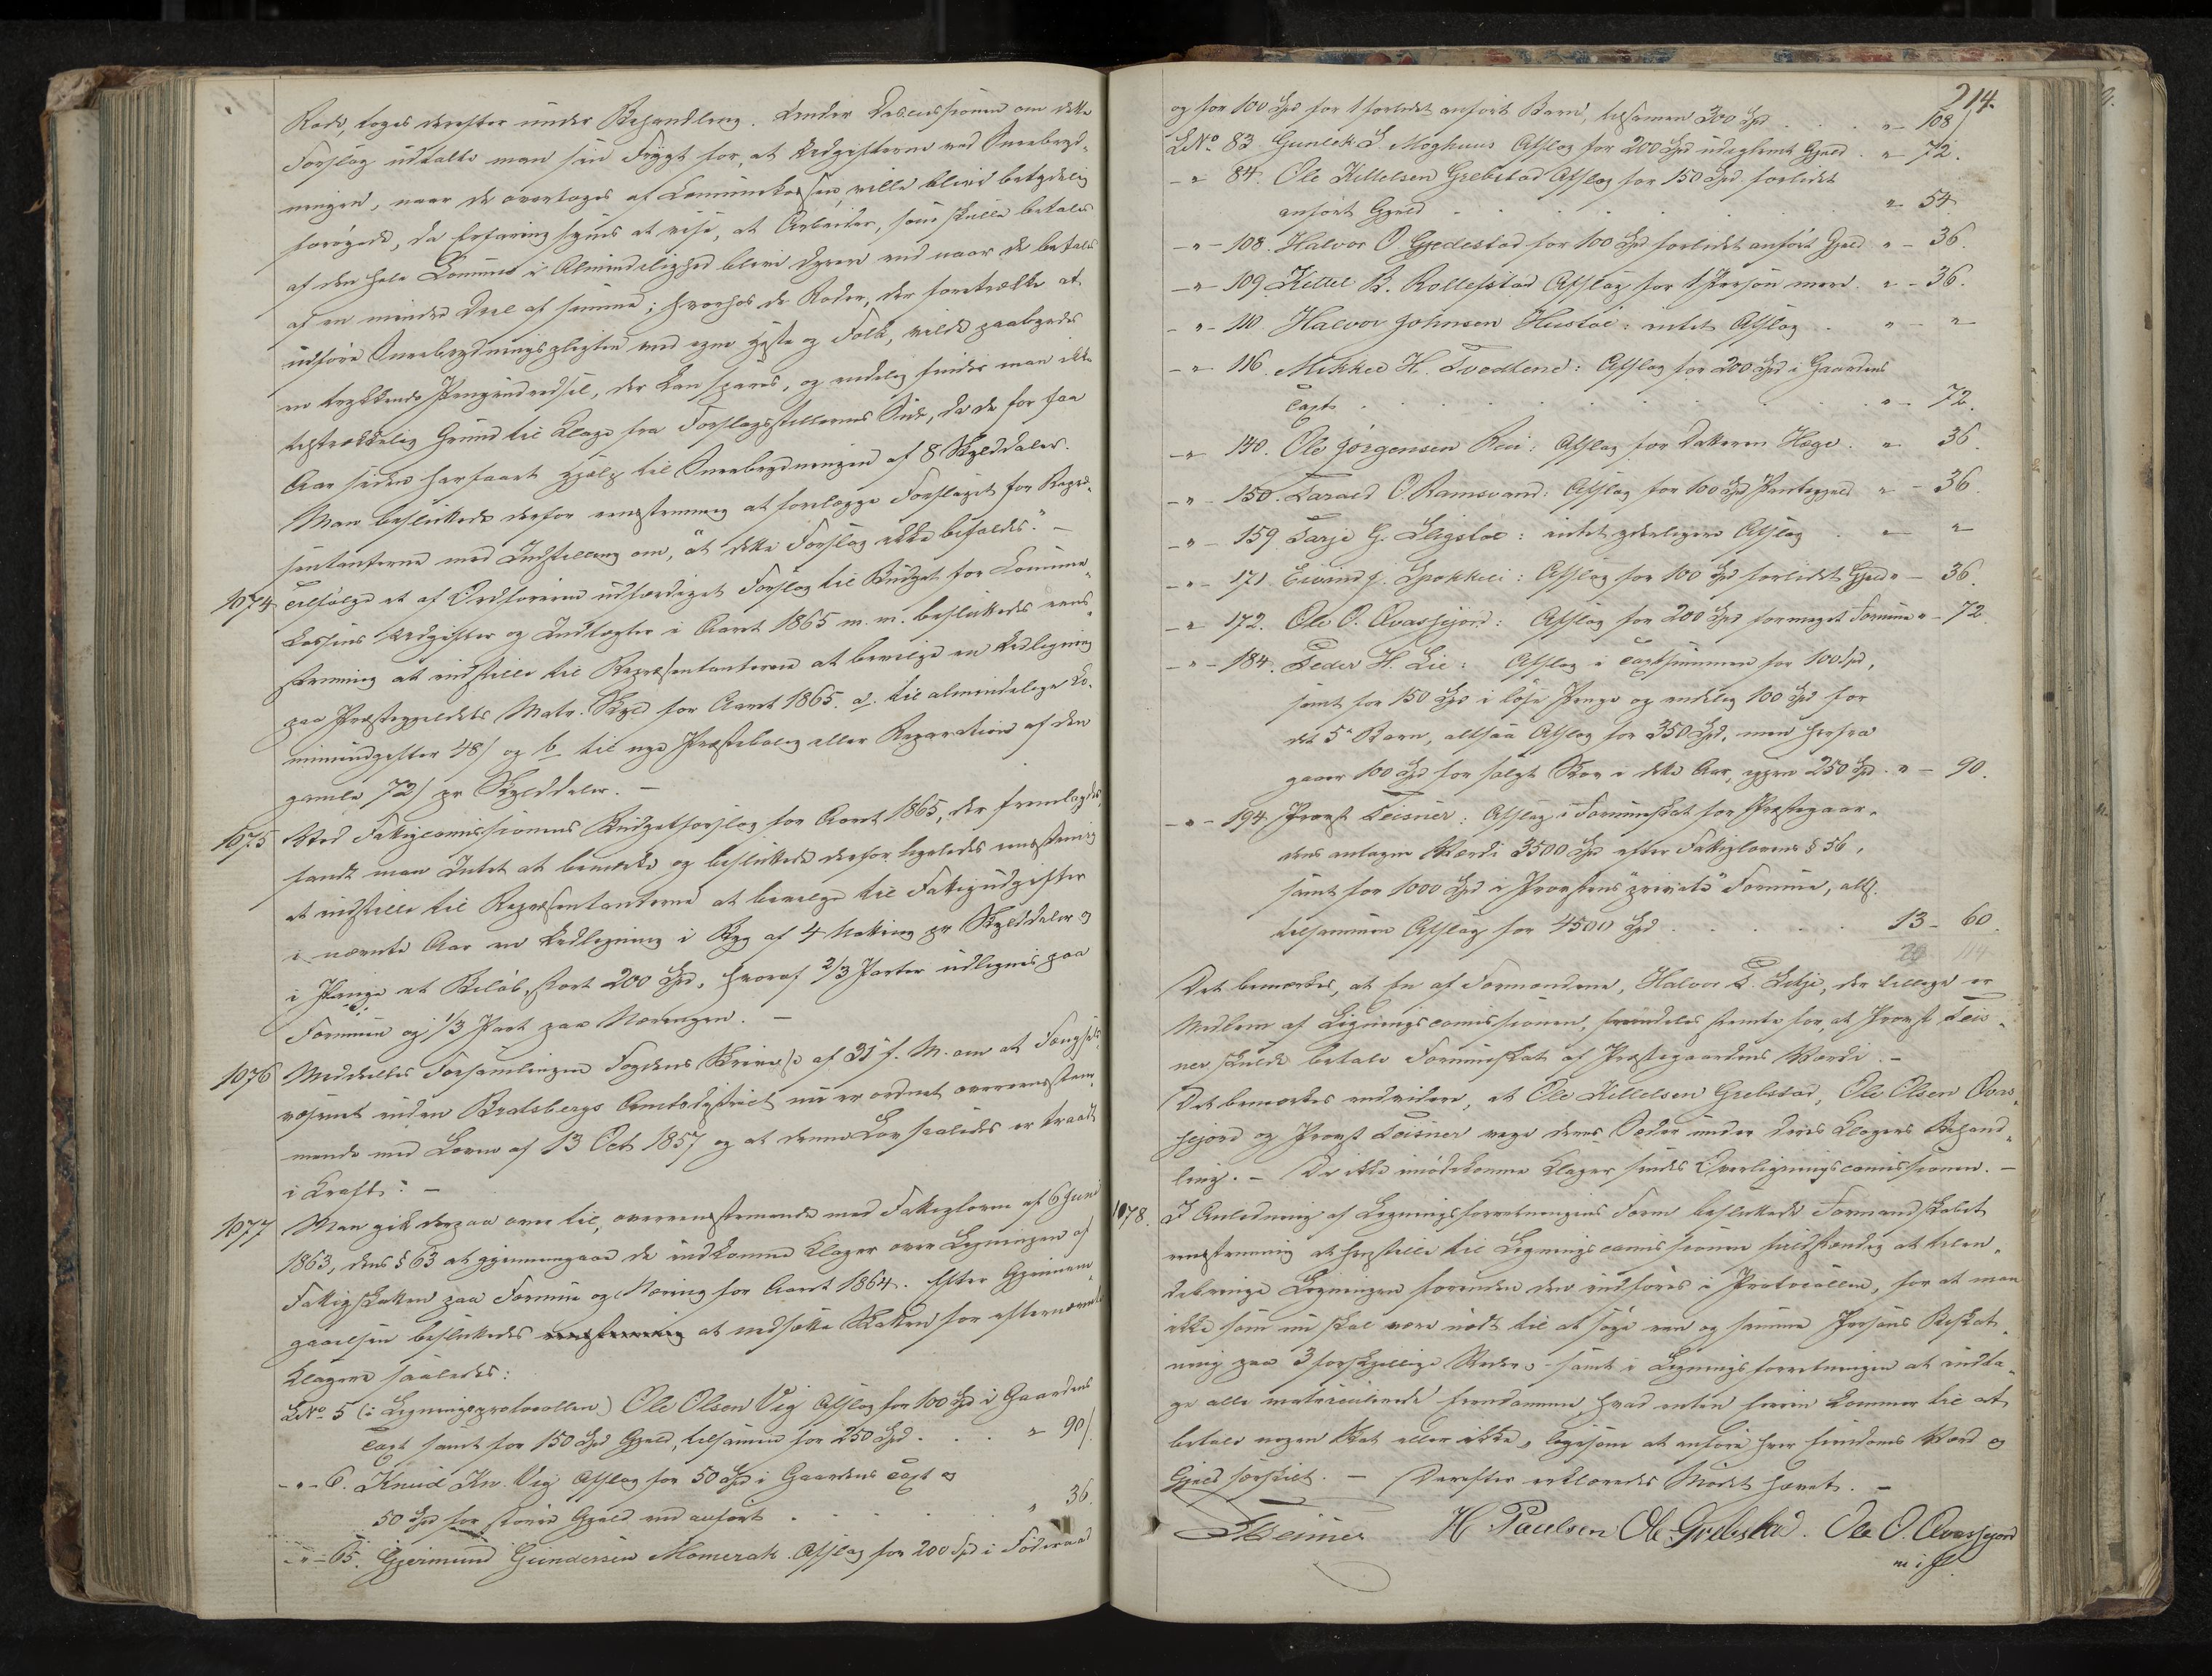 Rode, toges derefter under Behandling. Under Discussionen om dette
Forslag udtalte man sin Frygt for, at Udgifterne ved Sneebryd-
ningen, naar de overtoges af Communekassen, ville blive betydelig
forøgede, da Erfaring synes at vise, at Arbeider, som skulle betales
af den hele Commune i Almindelighed blive dyrere end naar de betales
af en mindre Deel af samme; hvorhos de Roder, der foretrække at
udføre Sneebrydningspligten med egne Heste og Folk, vilde paabyrdes
en trykkende Pengeudredsel, der kan spares, og endelig finder man ikke
tilstrækkelig Grund til Klage fra Forslagsstillernes Side, da de for faa
Aar siden har faaet Hjælp til Sneebrydningen af 8 Skylddaler.
Man besluttede derfor eenstemmig at forelægge Forslaget for Repræ-
sentanterne med Indstilling om, "at dette Forslag ikke bifaldes." —
1074 Tilfølge et af Ordføreren udfærdiget Forslag til Budget for Commune-
kassens Udgifter og Indtægter i Aaret 1865 m. m. besluttedes eens-
stemmig at indstille til Repræsentanterne at bevilge en Udligning
paa Præstegjeldets Matr. Skyld for Aaret 1865. a. til almindelige Co-
muneudgifter 48 ∫ og b. til nye Præstebolig eller Reparation af den
gamle 72 ∫ pr Skylddaler. —
1075 Ved Fattigcommissionens Budgetforslag for Aaret 1865, der fremlagdes,
fandt man Intet at bemærke og besluttede derfor ligeledes eenstemmig
at indstille til Repræsentanterne at bevilge til Fattigudgifter
i nævnte Aar en Udligning i Byg af 4 Notting pr Skylddaler og
i Penge et Beløb, stort 200 Spd, hvoraf 2/3 Parter udlignes paa
Formue og 1/3 Part paa Næringen. —
1076 Meddeeltes Forsamlingen Fogdens Skrivelse af 31 f. M. om at Fængsels-
væsenet inden Bratsbergs Amtsdistrict nu er ordnet overeensstem-
mende med Loven af 13 Oct 1857 og at denne Lov saaledes er traadt
i Kraft. —
1077 Man gik derpaa over til, overeensstemmende med Fattigloven af 6 Juni
1863, dens § 63 at gjennemgaae de indkomne Klager over Ligningen af
Fattigskatten paa Formue og Næring for Aaret 1864. Efter Gjennem-
gaaelsen besluttedes eenstemmig at nedsætte Skatten for efternævnte
Klagere saaledes:
LNo 5 (i Ligningsprotocollen) Ole Olsen Vig Afslag for 100 Spd i Gaardens
Taxt samt for 150 Spd Gjæld, tilsammen for 250 Spd . . . " 90 ∫.
— " — 6. Knud Kn. Vig Afslag for 50 Spd i Gaardens Taxt og
50 Spd for større Gjæld end anført . . . " 36.
— " — 65. Gjermund Gundersen Momrak. Afslag for 200 Spd i Føderaad
214.
og for 100 Spd for 1 forlidet anført Barn, tilsammen 300 Spd . . . " — 108 ∫
LNo. 83 Gunlek S. Moghuus Afslag for 200 Spd udeglemt Gjæld . " 72.
— " 84. Ole Kittelsen Grebstad Afslag for 150 Spd. forlidet
anført Gjæld . . . " 54.
— " — 108. Halvor O. Gjedestad for 100 Spd forlidet anført Gjæld " — 36.
— " — 109. Kittel B. Rollefstad Afslag for 1 Person mere. " — 36.
— " — 110 Halvor Johnsen Hustøl: intet Afslag . " — "
— " 116. Mikkel H. Tvedtene: Afslag for 200 Spd i Gaardens
Taxt . . . " — 72.
— " 140. Ole Jørgensen Rui: Afslag for Datteren Hæge . " 36.
— " — 150. Tarald O. Ramsvand: Afslag for 100 Spd Pantegjæld " — 36
— " — 159 Tarje G. Sligstøl: intet yderligere Afslag . " — "
— " — 171 Eivind J. Spokkeli: Afslag for 100 Spd forlidet Gjæld " — 36.
— " 172. Ole O. Qvassjord: Afslag for 200 Spd formeget Formue " — 72
— " — 184. Peder H. Lie: Afslag i Taxtsummen for 100 Spd,
samt for 150 Spd i løse Penge og endelig 100 Spd for
det 5te Barn, altsaa Afslag for 350 Spd, men herfra
gaaer 100 Spd for solgt Skov i dette Aar, igjen 250 Spd. " — 90.
— " — 194 Provst Leisner: Afslag i Formueskat for Præstegaar-
dens antagne Værdi 3500 Spd efter Fattiglovens § 56,
samt for 1000 Spd i Provstens "private" Formue, alts.
tilsammen Afslag for 4500 Spd . . . 13 — 60.
20 114
Det bemærkes, at En af Formændene, Halvor T. Litje, der tillige er
Medlem af Ligningscomissionen, fremdeles stemte for, at Provst Leis-
ner skulde betale Formueskat af Præstegaardens Værdi. —
Det bemærkes endvidere, at Ole Kittelsen Grebstad, Ole Olsen Qvas-
sjord og Provst Leisner veg deres Sæder under deres Klagers Behand-
ling. — De ikke imødekomne Klager sendes Overligningscomissionen. —
1078. I Anledning af Ligningsforretningens Form besluttede Formandskabet
eenstemmig at henstille til Ligningscomissionen fuldstændig at tilen-
debringe Ligningen forinden den indføres i Protocollen, for at man
ikke som nu skal være nødt til at søge een og samme Persons Beskat-
ning paa 3 forskjellige Steder samt i Ligningsforretningen at indta-
ge alle matriculerede Eiendomme, hvad enten Eieren kommer til at
betale nogen Skat eller ikke, ligesom at anføre hver Eiendoms Værd og
Gjæld særskilt. — Derefter erklæredes Mødet hævet. —
Leisner H Paulsen Ole Grebstad. Ole O. Qvassjord
m i P.